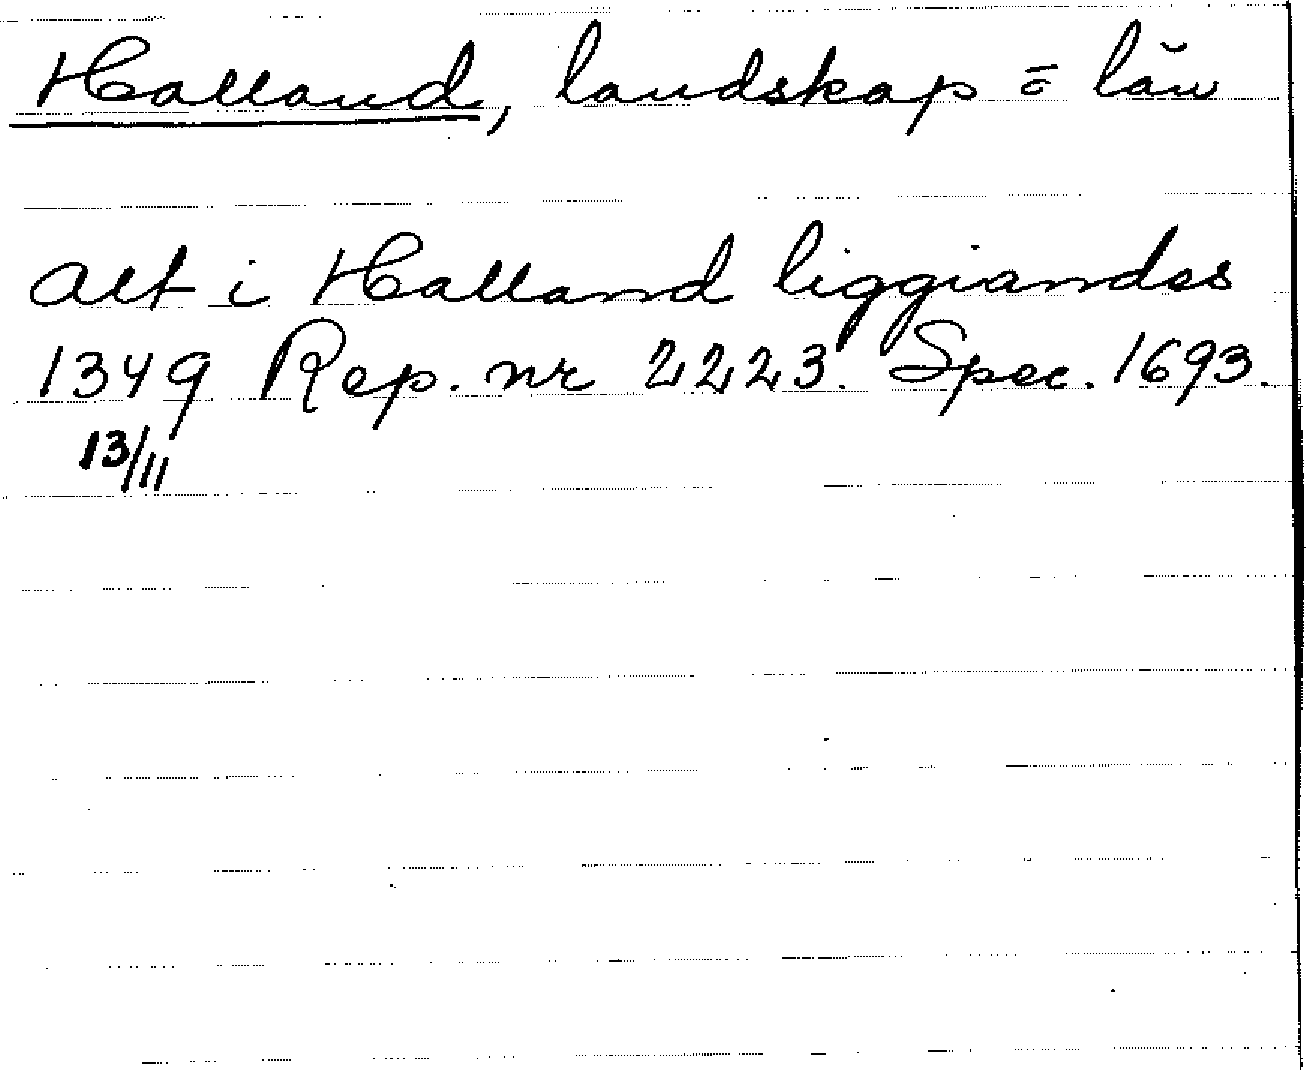 Halland, landskap = län
alt i Halland liggiandes
1349 Rep. nr 2223. Spec. 1693.
13/11